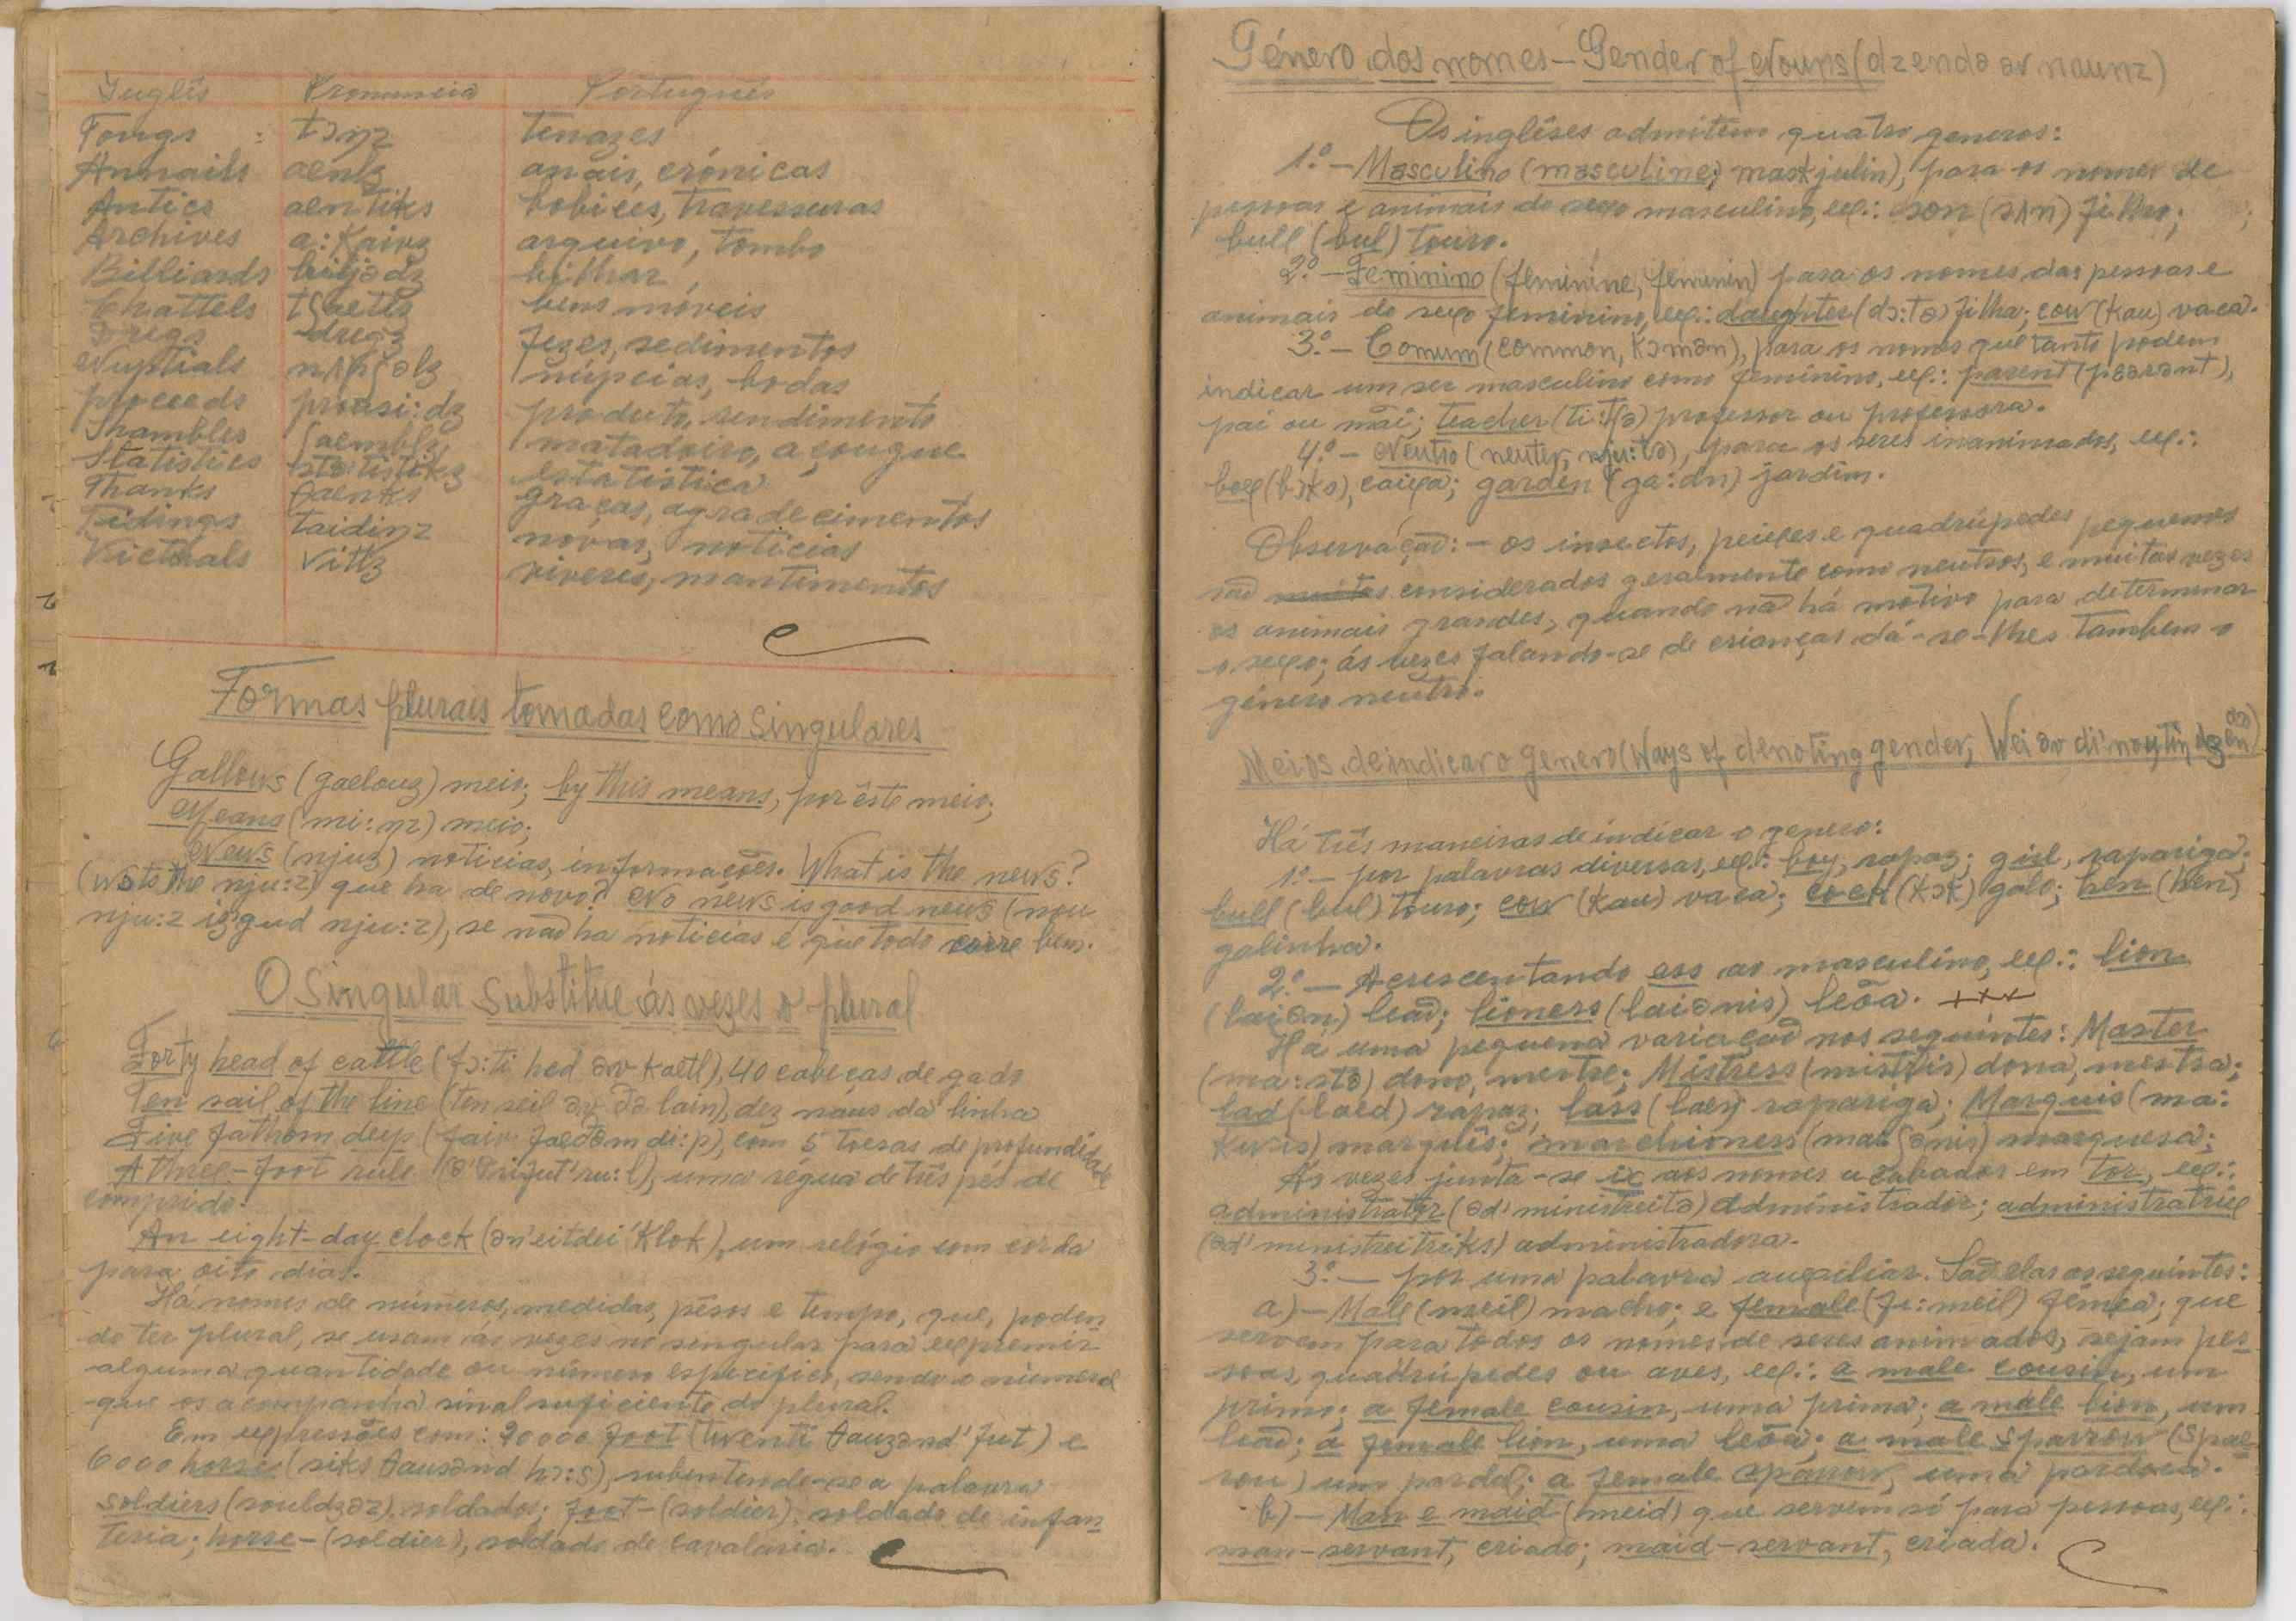 Inglês Pronuncia Português
Tongs tɔŋz tenazes
Annails aenlz anais, crónicas
Antics aentiks bobices, travessuras
Archives a:kaivz arquivo, tombo
Billiards biljədz bilhar
Chattels tʃaetlz bens móveis
Dregs dregz fezes, sedimentos
Nuptials nʌpʃəlz núpcias, bodas
Proceeds prousi:dz produto, rendimento
Shambles ʃaemblz matadoiro, açougue
Statistics estatistica
Thanks θaenks graças, agradecimentos
Tidings taidiŋz novas, noticias
Victuals vitlz viveres, mantimentos
Formas plurais tomadas como singulares
Gallows (gaelouz) meio; by this means, por êste meio;
Means (mi:nz) meio;
News (njuz) noticias, informações. What is the news?
(wɔts the nju:z) que ha de novo? No news is good news (nou
nju:z iz gud nju:z), se não ha noticias é que todo corre bem.
O Singular Substitue ás vezes o plural
Forty head of cattle (fɔ:ti hed əv kaetl), 40 cabeças de gado
Ten sail of the line (ten seil əv ðə lain), dez náus da linha
Five fathom deep (faiv faeðəm di:p), com 5 toesas de profundidade
A three-foot rule (ə'θrifut'ru:l), uma régua de três pés de
comprido.
An eight-day clock (ən'eitdei'klok), um relógio com corda
para oito dias.
Há nomes de números, medidas, pêsos e tempo, que, poden
do ter plural, se usam ás vezes no singular para exprimir
alguma quantidade ou número especifico, sendo o númeral
que os acompanha sinal suficiente do plural.
Em expressões com: 20000 foot (twenti θauzənd'fut) e
6000 horse (siks θausənd hɔ:s), subentende-se a palavra
soldiers (souldʒəz), soldados; foot-(soldier), soldado de infan
teria; horse-(soldier), soldado de cavalaria.
Género dos nomes - Gender of Nouns (dzendə əv naunz)
Os inglêses admitem quatro generos:
1.º - Masculino (masculine; maskjulin), para os nomes de
pessoas e animais do sexo masculino, ex.: son (sʌn) filho;
bull (bul) touro.
2.º - Feminino (feminine, feminin) para os nomes das pessoas e
animais do sexo feminino, ex.: daughter (dɔ:tə) filha; cow (kau) vaca.
3.º - Comum (common, kɔmən), para os nomes que tanto podem
indicar um ser masculino como feminino, ex.: parent (pɛərənt),
pai ou mãi; teacher (ti:tʃə) professor ou professora.
4.º - Neutro (neuter, nju:tə), para os seres inanimados, ex.:
box (bɔks), caixa; garden (ga:dn) jardim.
Observação: - os insectos, peixes e quadrúpedes pequenos
são considerados geralmente como neutros, e muitas vezes
os animais grandes, quando não há motivo para determinar
o sexo; ás vezes falando-se de crianças dá-se-lhes tambem o
género neutro.
Meios de indicar o genero (Ways of denoting gender, Wei əv di'noutiŋ dʒendə)
Há três maneiras de indicar o genero:
1.º - por palavras diversas, ex.: boy, rapaz; girl, rapariga;
bull (bul) touro; cow (kau) vaca; cock (kɔk) galo; hen (hen)
galinha.
2.º - Acrescentando ess ao masculino, ex.: lion
(laiən) leão; lioness (laiənis) leôa. +++
Há uma pequena variação nos seguintes: Master
(ma:stə) dono, mestre; Mistress (mistris) dona, mestra;
lad (laed) rapaz; lass (laes) rapariga; Marquis (ma:
kwis) marquês; marchioness (maʃənis) marquesa;
Ás vezes junta-se ix aos nomes acabados em tor, ex.:
administrator (əd'ministreitə) administrador; administratrix
(əd'ministreitriks) administradora.
3.º - por uma palavra auxiliar. São elas as seguintes:
a) - Male (meil) macho; e female (fi:meil) fêmea; que
servem para todos os nomes de seres animados, sejam pes
soas, quadrúpedes ou aves, ex.: a male cousin, um
primo; a female cousin, uma prima; a male lion, um
leão; a female lion, uma leôa; a male sparrow (spae
rou) um pardal; a female sparrow, uma pardoca.
b) - Man e maid (meid) que servem só para pessoas, ex:
man-servant, criado; maid-servant, criada.